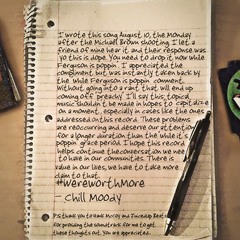 I wrote this song August 10, the Monday
after the Michael Brown shooting. I let a
friend of mine hear it, and their response was
yo this is dope. You need to drop it now while
Ferguson is poppin. I appreciated the
compliment but was instantly taken back by
the while Ferguson is poppin comment.
Without going into a rant that will end up
coming off preachy I'll say this, topical
music shouldn't be made in hopes to capitalize
on a moment, especially in cases like the ones
addressed on this record. These problems
are reoccurring and deserve our attention
for a longer duration than the while it's
poppin grace period. I hope this record
helps continue the conversation we need
to have in our communities. There is
value in our lives, we have to take more
claim to that.
#wereworthmore
- Chill Moody
P.S. thank you to Hank McCoy and
providing the soundtrack for me to get
these thoughts out. You are appreciated.